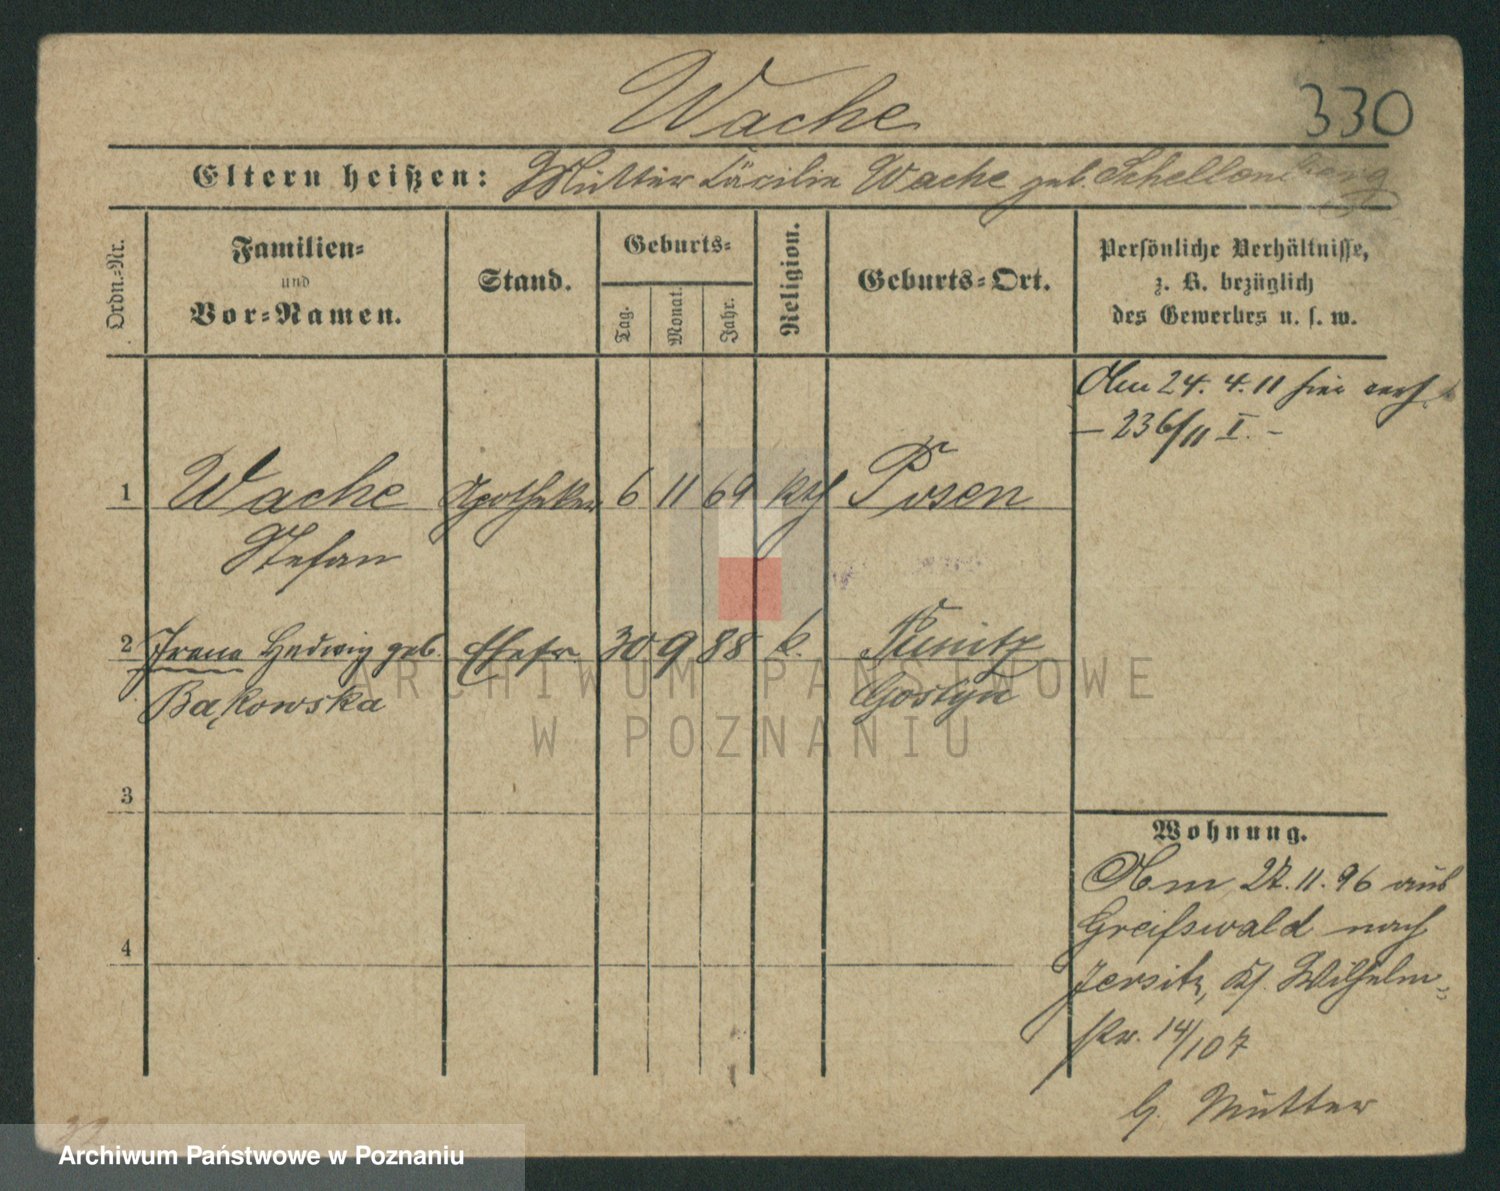 Wache
330
Eltern heißen: Mutter Cäcilie Wache geb. Schellenberg
Ordn.-Nr.
Familien- und Vor-Namen.
Stand.
Geburts-
Tag.
Monat.
Jahr.
Religion.
Geburts-Ort.
Persönliche Verhältnisse,
z. B. bezüglich
des Gewerbes u. s. w.
Am 24. 4. 11 hier verh.
- 236/11 I. -
1 Wache Apotheker 6 11 69 kth Posen
Stefan
2 Irene Hedwig geb. Ehefr. 30 9 88 k. Punitz
Bąkowska Gostyn
3
4
Wohnung.
Am 27. 11. 96 aus
Greifswald nach
Jersitz, Ks. Wilhelm-
str. 14/107
b. Mutter
ARCHIWUM PAŃSTWOWE
W POZNANIU
Archiwum Państwowe w Poznaniu